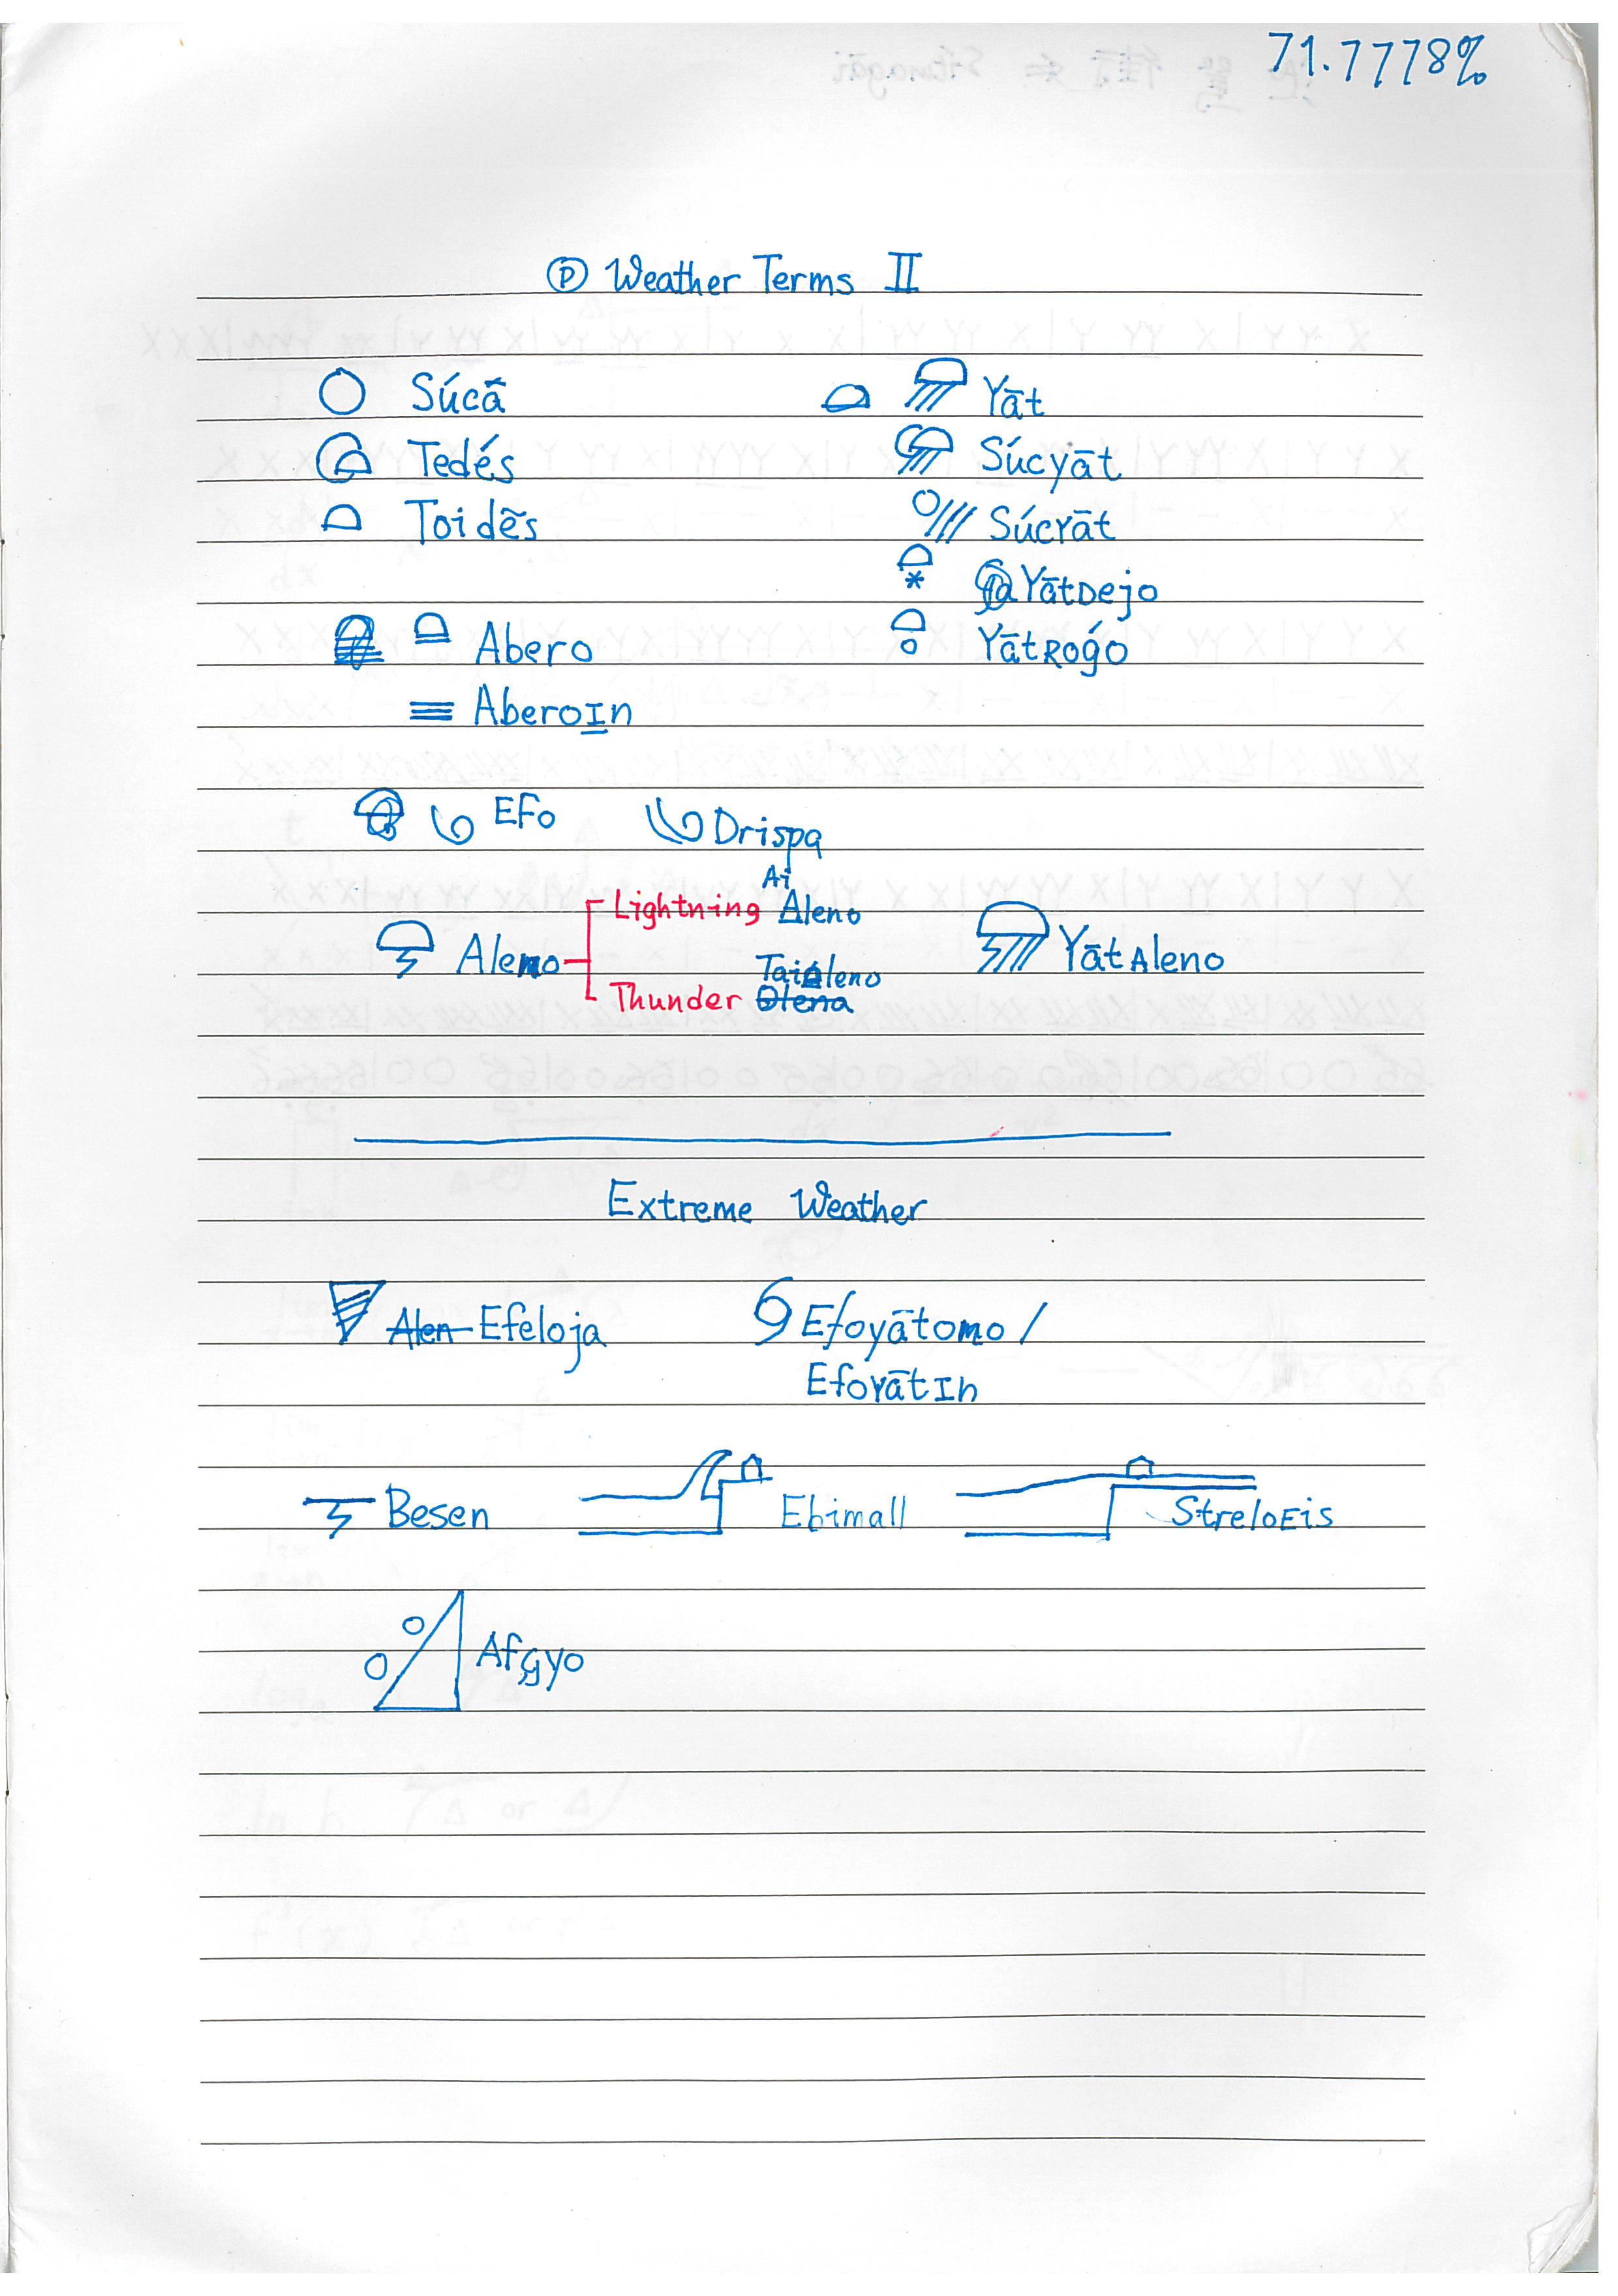 71.7778%
Ⓟ Weather Terms II
Súcā Yāt
Tedés Súcyāt
Toidēs Súcyāt
YātDejo
Abero YātRoǵo
AberoIn
EFo Drispa
Ai
Lightning Aleno
Aleno YātAleno
TaiAleno
Thunder Olena
Extreme Weather
Alen Efeloja Efoyātomo /
EfoyātIn
Besen Ebimall StreloEis
Afgyo